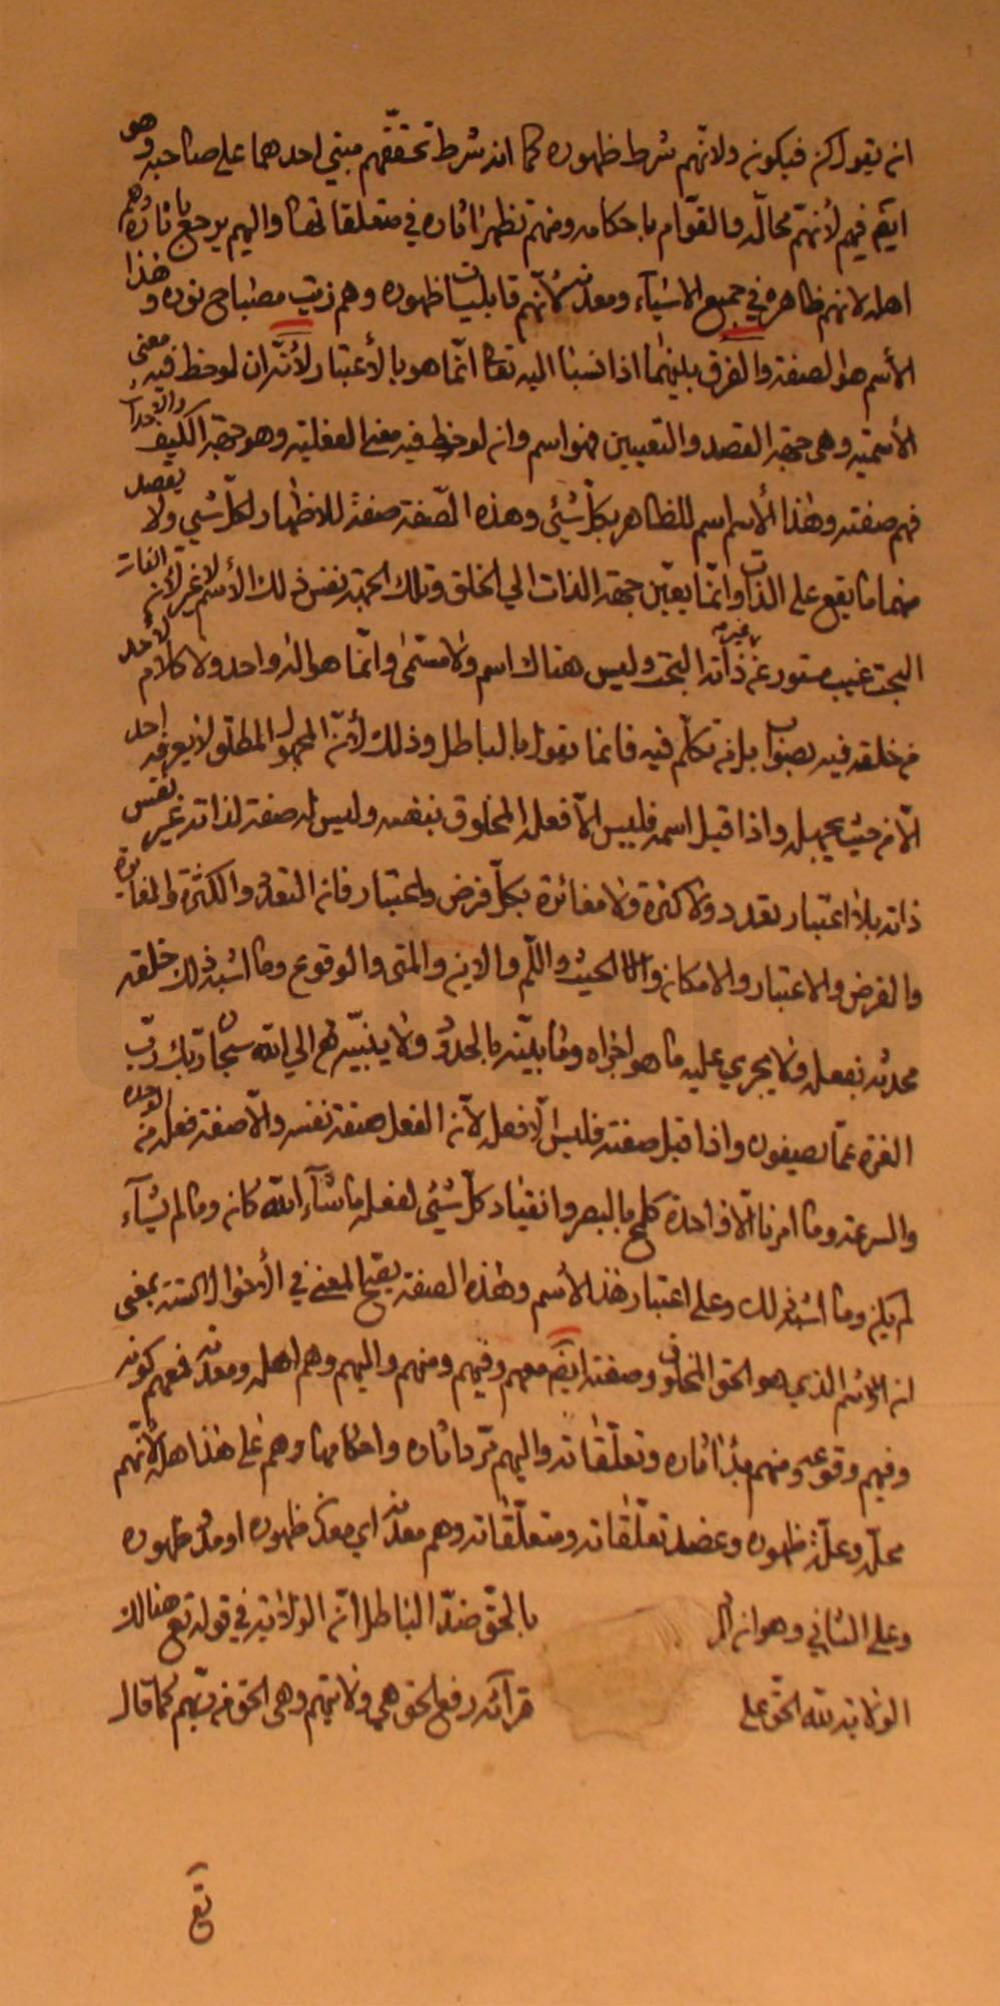 ان يقول كن فيكون ولانهم شرط ظهوره كما انه شرط تحققهم مبنى احدهما على صاحبه وهو
ايضم فيهم لأنهم محالّه والقوّام باحكامه ومنهم تظهر اثاره في متعلقاتها واليهم يرجع باثاره هم
اهله لانهم ظاهره في جميع الاشيآء ومعدنه لأنّهم قابليات ظهوره وهم زيت مصباح نوره وهذا
الأسم هو الصفة والفرق بينهما اذا نسبنا اليه تعا انّما هو بالأعتبار لأنه ان لوحظ فيه معنى
الأسمية وهى جهة القصد والتعيين فهو اسم وان لوحظ فيه معنى الفعلية وهو جهة الكيف
فهم صفته وهذا الأسم اسم للظاهر بكلّ شئ وهذه الصّفة صفة للاظهار لكلّ شئ ولا يقصد
منهما ما يقع على الذات وانّما يعيّن جهة الذات الي الخلق وتلك الجهة نفس ذلك الأسم لا غير لأن الذات
البحت غيب مستور عن غيره ذاته البحت وليس هناك اسم ولا مسمّى وانّما هو اله واحد ولا كلام لأحد
من خلقه فيه بصواب بل من تكلّم فيه فانما يقول بالباطل وذلك لأنّ المجهول المطلق لا يعرفه احد
الّا من حيث يجهله واذا قيل اسمه فليس الّا فعله المخلوق بنفسه وليس له صفة لذاته غير نفس
ذاته بلا اعتبار تعدد ولا كثرة ولا مغائرة بكلّ فرض واعتبار فان التعدّد والكثرة والمغايرة
والفرض والاعتبار والامكان والحيث والكم والاين والمتى والوقوع وما اشبه ذلك خلقه
محدث بفعله ولا يجري عليه ما هو اجراه وما بيّنه بالحدود ولا ينتهي الي الله سبحان ربّك ربّ
العزة عمّا يصفون واذا قيل صفته فليس الّا فعله لأنّ الفعل صفة نفسه والّا صفة فعله من الوحدة
والسرعة وما امرنا الّا واحدة كلمح بالبصر وانقياد كلّ شئ لفعله ما شآء الله كان وما لم يشآء
لم يكن وما اشبه ذلك وعلى اعتبار هذا الأسم وهذه الصفة يصح المعنى في الأحوال الستة بمعنى
ان الاسم الذي هو الحق المخلوق وصفته ايضم معهم وفيهم ومنهم واليهم وهم اهله ومعدنه فمعهم كونه
وفيهم وقوعه ومنهم مبدأ اثاره وتعلّقاته واليهم تردّ اثاره واحكامها وهم على هذا اهله لأنّهم
محلّه وعلّة ظهوره وعضد تعلّقاته ومتعلّقاته وهم معدنه اي معدن ظهوره او مدد ظهوره
وعلى الثاني وهو ان بالحقّ ضدّ الباطل انّ الولاية في قوله تع هنالك
الولاية لله الحقّ على قرائة رفع الحق هي ولايتهم وهى الحق من ربّهم كما قال
تع